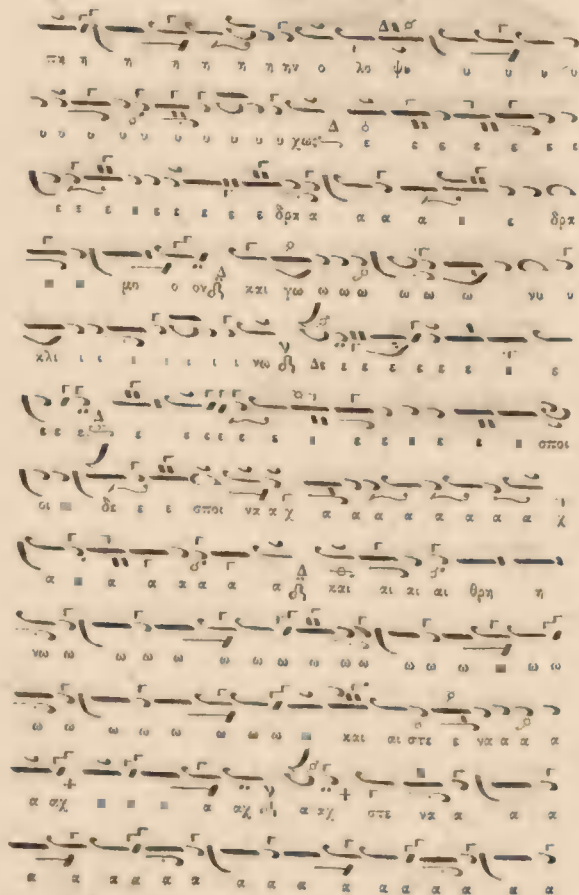 πη η η η η η η ην ο λο ψυ υ υ υ υ
υ υ υ υ υ υ υ υ υ χως Δ ε ε ε ε ε ε ε
ε ε ε ε ε ε ε ε δρα α α α α ε δρα
μο ο ον Δ και γω ω ω ω ω ω ω νυ υ
κλι ι ι ι ι ι ι ι νω Δε ε ε ε ε ε ε
ε ε ε Δ ε ε ε ε ε ε ε ε ε ε σποι
σι δε ε ε σποι να α χ α α α α α α α χ
α α α α α α α Δ και αι αι αι θρη η
νω ω ω ω ω ω ω ω ω ω ω ω ω ω ω
ω ω ω ω ω ω ω ω ω και αι στε ε να α α α
α αχ α αχ α αχ στε να α α α
α α α α α α α α α α α α α α α